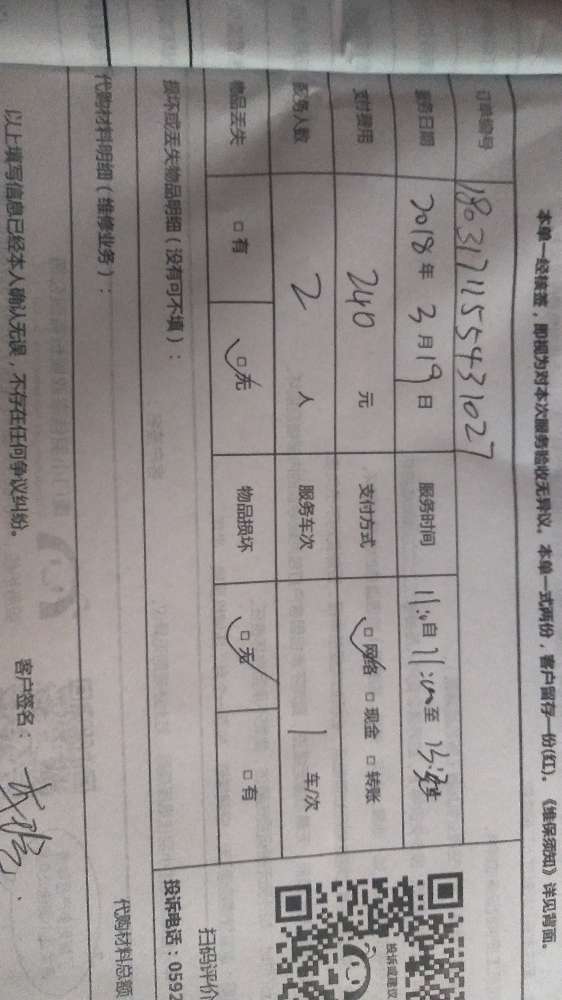 本单一经核签，即视为对本次服务验收无异议。本单一式两份，客户留存一份(红)。《维保须知》详见背面。
订单编号 1803171155431027
服务日期 2018年3月19日 服务时间 自 11:00 至
支付费用 240 元 支付方式 □网络 □现金 □转账
服务人数 2 人 服务车次 1 车/次
物品丢失 □有 □无 物品损坏 □无 □有
损坏或丢失物品明细（没有可不填）：
投诉或建议
扫码评价
投诉电话：0592
代购材料明细（维修业务）：
代购材料总额
以上填写信息已经本人确认无误，不存在任何争议纠纷。 客户签名：